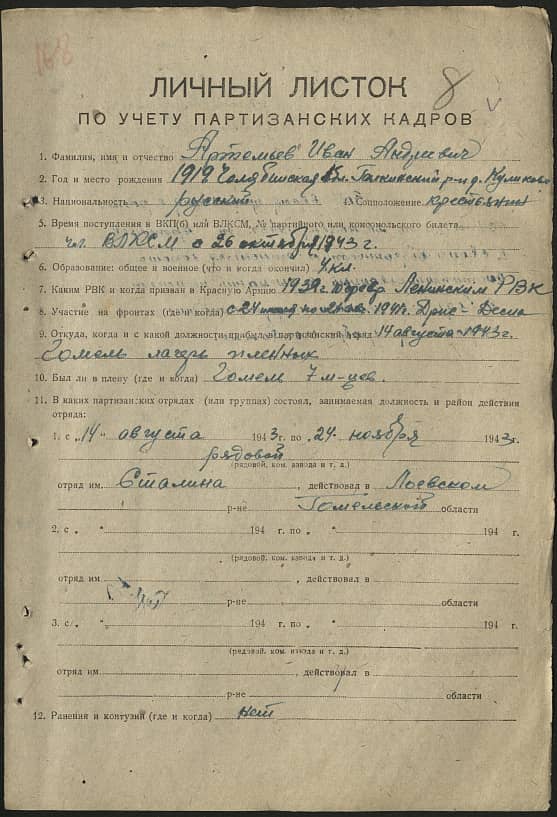 168
ЛИЧНЫЙ ЛИСТОК 8
ПО УЧЕТУ ПАРТИЗАНСКИХ КАДРОВ
1. Фамилия, имя и отчество Артемьев Иван Андреевич
2. Год и место рождения 1919 Челябинская обл.
3. Национальность русский Соцположение крестьянин
5. Время поступления в ВКП(б) или ВЛКСМ, № партийного или комсомольского билета
чл. ВЛКСМ с 26 октября 1943 г.
6. Образование: общее и военное (что и когда окончил) 4 кл.
7. Каким РВК и когда призван в Красную Армию 1939 г. Ленинским РВК
8. Участие на фронтах (где и когда)
9. Откуда, когда и с какой должности прибыл в партизанский отряд 14 августа 1943 г.
Гомель лагерь пленных
10. Был ли в плену (где и когда) Гомель 7 м-цев.
11. В каких партизанских отрядах (или группах) состоял, занимаемая должность и район действия
отряда:
1. с „14" августа 1943 г. по 24 ноября 1943 г.
рядовой
(рядовой, ком. взвода и т. д.)
отряд им. Сталина, действовал в Лоевском
р-не Гомельской области
2. с „ " 194 г. по „ " 194 г.
(рядовой, ком. взвода и т. д.)
отряд им. , действовал в
р-не области
3. с „ " 194 г. по „ " 194 г.
(рядовой, ком. взвода и т. д.)
отряд им. , действовал в
р-не области
12. Ранения и контузии (где и когда) нет